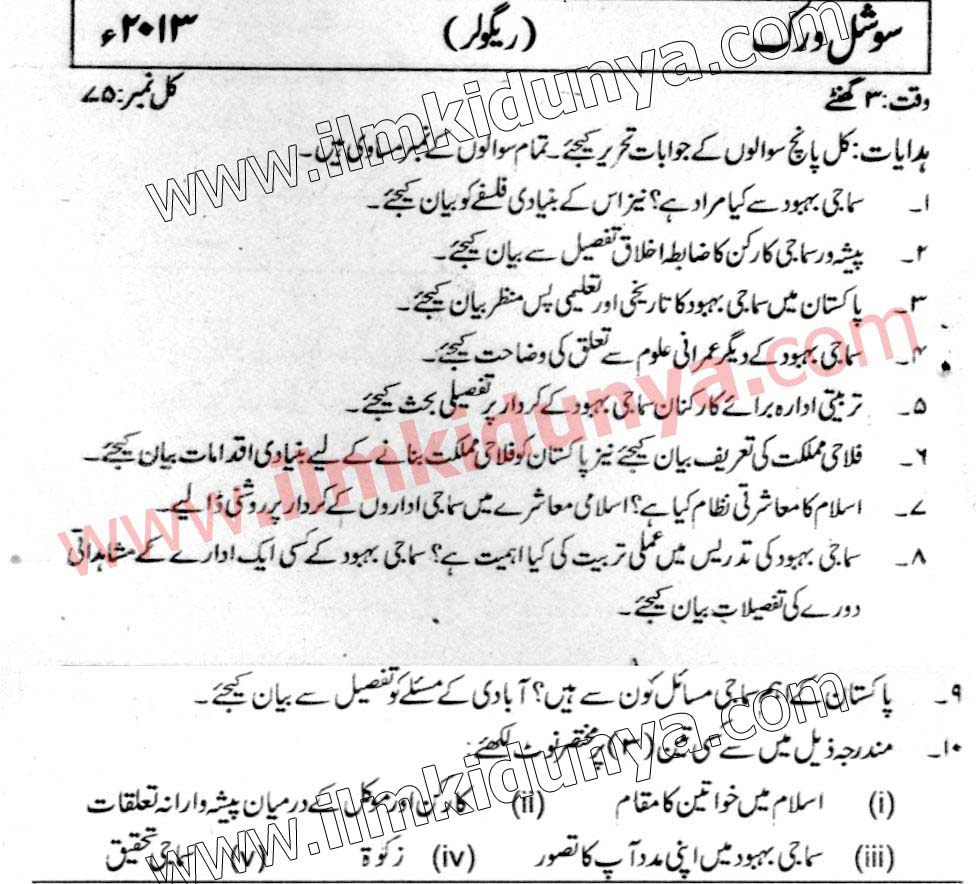 سوشل ورک (ریگولر) ۲۰۱۳ء
وقت: ۳ گھنٹے کل نمبر: ۷۵
ہدایات: کل پانچ سوالوں کے جوابات تحریر کیجئے۔ تمام سوالوں کے نمبر مساوی ہیں۔
۱۔ سماجی بہبود سے کیا مراد ہے؟ نیز اس کے بنیادی فلسفے کو بیان کیجئے۔
۲۔ پیشہ ور سماجی کارکن کا ضابطہ اخلاق تفصیل سے بیان کیجئے۔
۳۔ پاکستان میں سماجی بہبود کا تاریخی اور تعلیمی پس منظر بیان کیجئے۔
۴۔ سماجی بہبود کے دیگر عمرانی علوم سے تعلق کی وضاحت کیجئے۔
۵۔ تربیتی ادارہ برائے کارکنان سماجی بہبود کے کردار پر تفصیلی بحث کیجئے۔
۶۔ فلاحی مملکت کی تعریف بیان کیجئے نیز پاکستان کو فلاحی مملکت بنانے کے لیے بنیادی اقدامات بیان کیجئے۔
۷۔ اسلام کا معاشرتی نظام کیا ہے؟ اسلامی معاشرے میں سماجی اداروں کے کردار پر روشنی ڈالیے۔
۸۔ سماجی بہبود کی تدریس میں عملی تربیت کی کیا اہمیت ہے؟ سماجی بہبود کے کسی ایک ادارے کے مشاہداتی
دورے کی تفصیلات بیان کیجئے۔
۹۔ پاکستان کے اہم سماجی مسائل کون سے ہیں؟ آبادی کے مسئلے کو تفصیل سے بیان کیجئے۔
۱۰۔ مندرجہ ذیل میں سے کسی تین (۳) پر مختصر نوٹ لکھئے:
(i) اسلام میں خواتین کا مقام (ii) کارکن اور موکل کے درمیان پیشہ وارانہ تعلقات
(iii) سماجی بہبود میں اپنی مدد آپ کا تصور (iv) زکوٰة (v) سماجی تحقیق
www.ilmkidunya.com
www.ilmkidunya.com
www.ilmkidunya.com